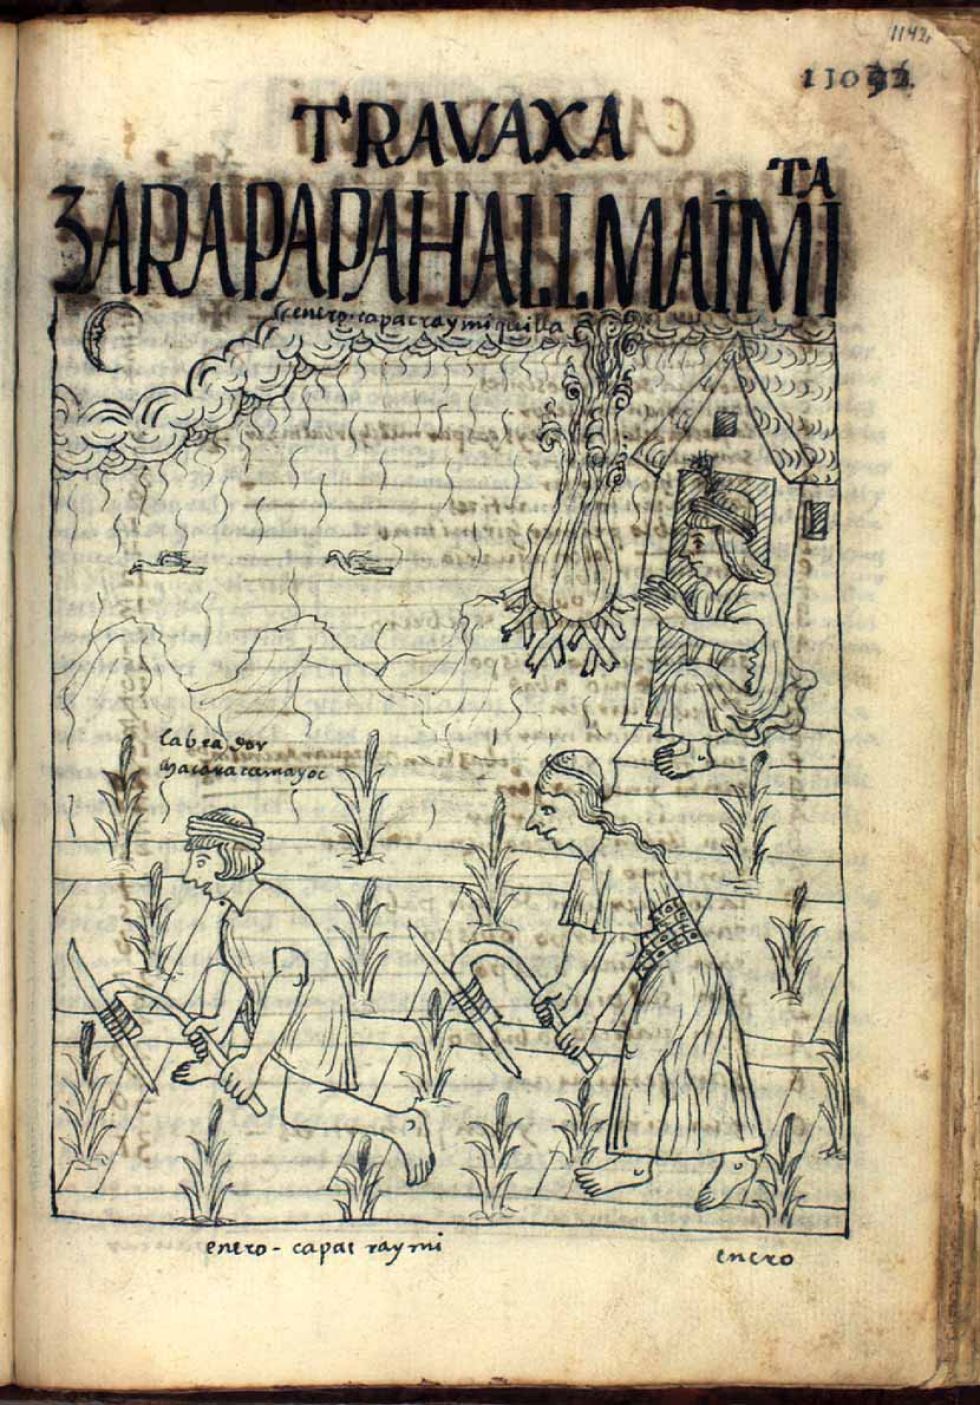 1142
TRAVAXA
ZARA PAPA HALLMAIMITA
enero capac raymi quilla
labrador
hacaracamayoc
enero - capac raymi
enero